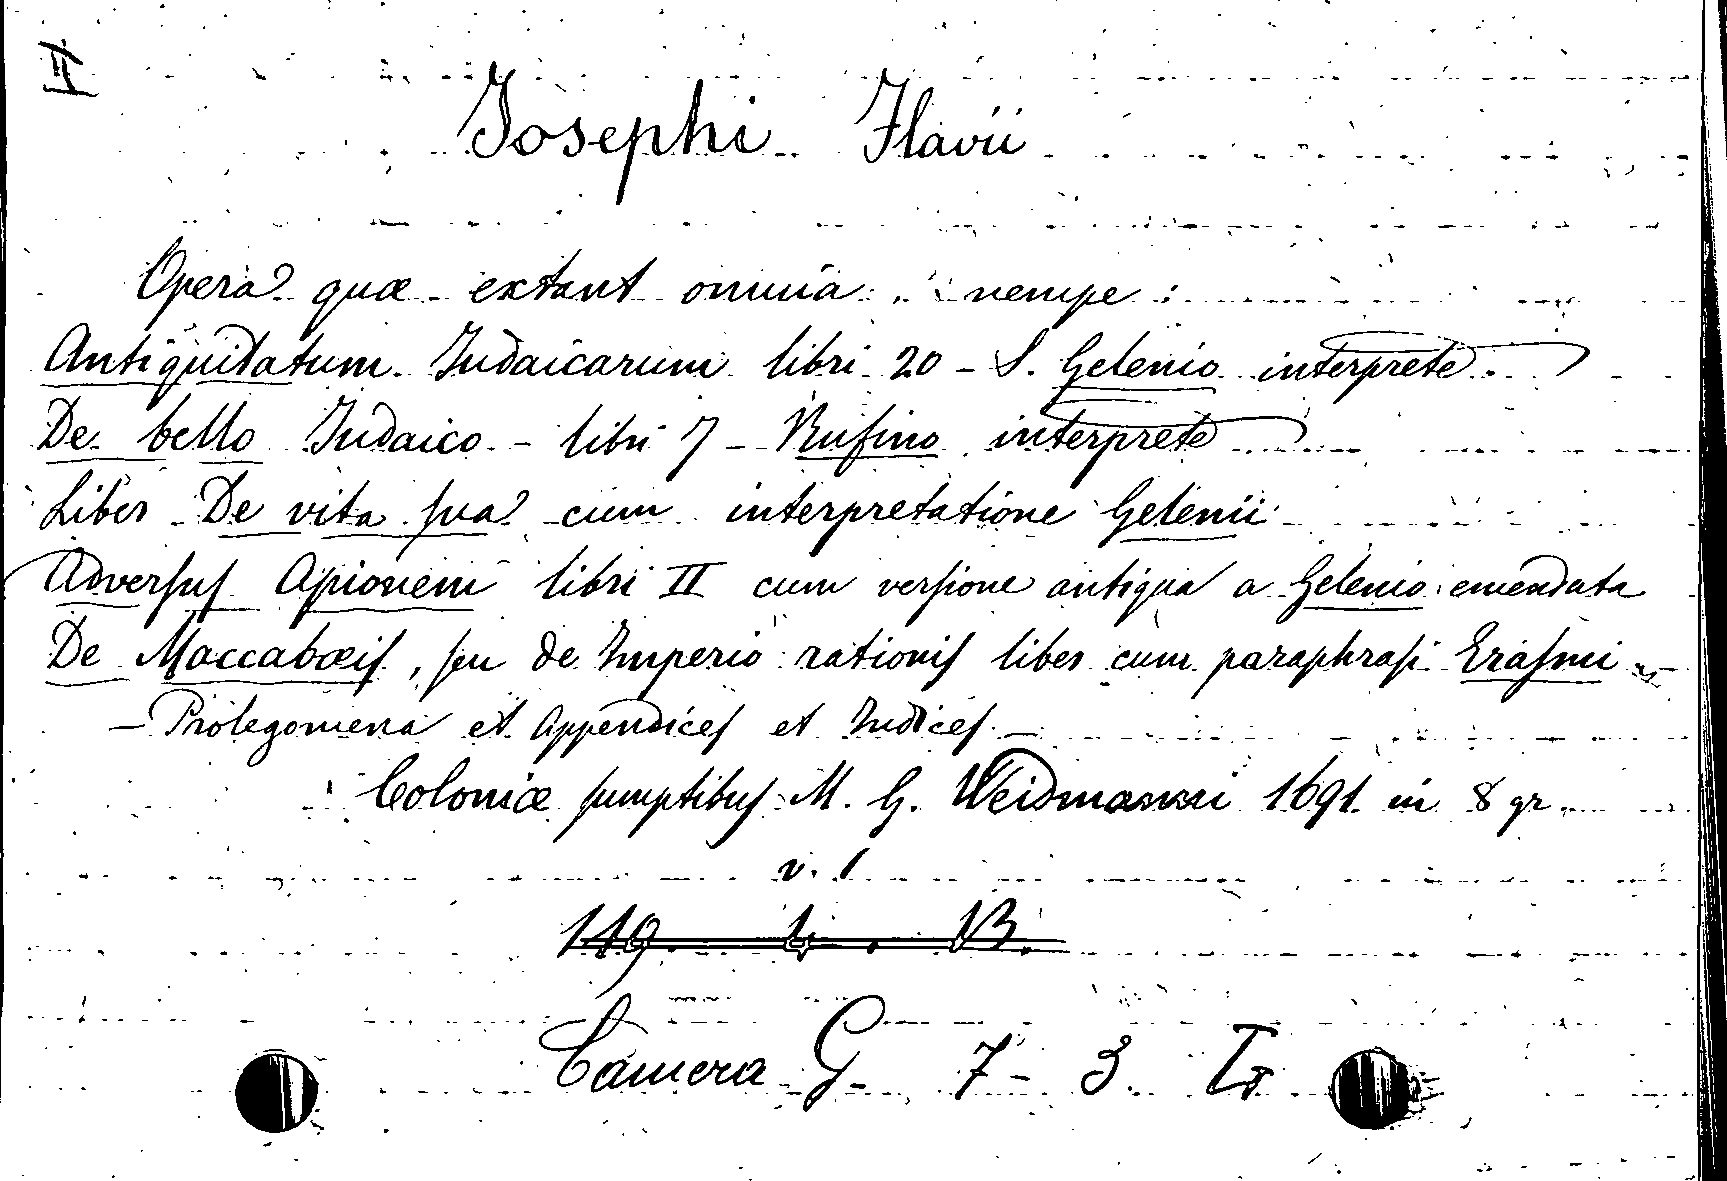 II
Josephi Flavii
Opera quæ extant omnia : nempe :
Antiquitatum Judaicarum libri 20 - S. Gelenio interprete
De bello Judaico - libri 7 - Rufino interprete
Liber De vita sua cum interpretatione Gelenii
Adversus Apionem libri II cum versione antiqua a Gelenio emendata
De Maccabæis, seu de Imperio rationis liber cum paraphrasi Erasmi
- Prolegomena et Appendices et Indices -
Coloniæ sumptibus M. G. Weidmanni 1691 in 8 gr.
v. 1
119. 4. 13.
Camera G- 7- 3.